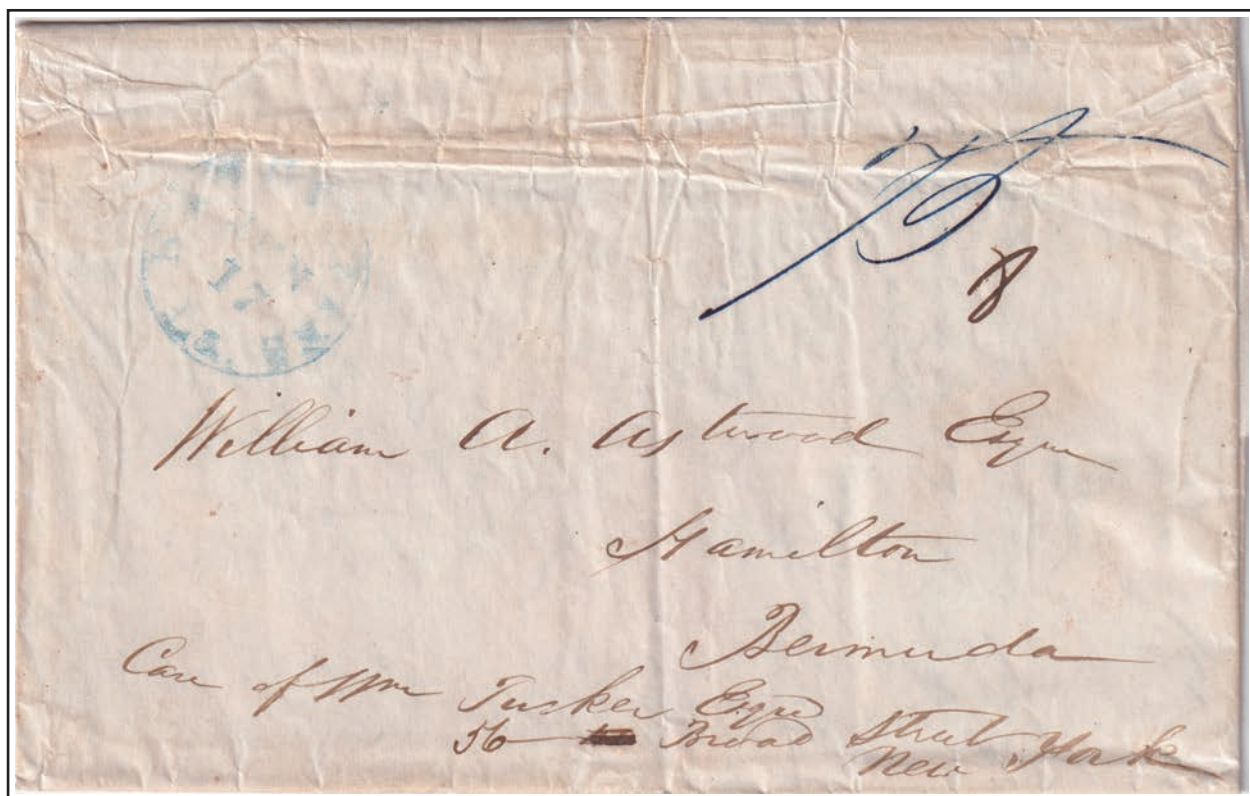 17
8
William A. Astwood Esqre
Hamilton
Bermuda
Care of Wm Tucker Esqre
56 Broad Street
New York